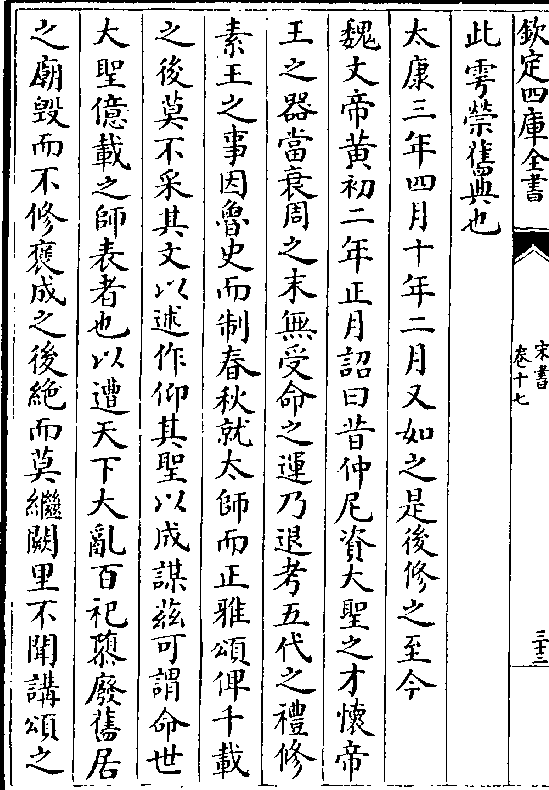 欽定四庫全書
宋書
卷十七
三十三
此雩禜舊典也
太康三年四月十年二月又如之是後修之至今
魏文帝黄初二年正月詔曰昔仲尼資大聖之才懷帝
王之器當衰周之末無受命之運乃退考五代之禮修
素王之事因魯史而制春秋就太師而正雅頌俾千載
之後莫不采其文以述作仰其聖以成謀兹可謂命世
大聖億載之師表者也以遭天下大亂百祀隳廢舊居
之廟毁而不修襃成之後絶而莫繼闕里不聞講頌之